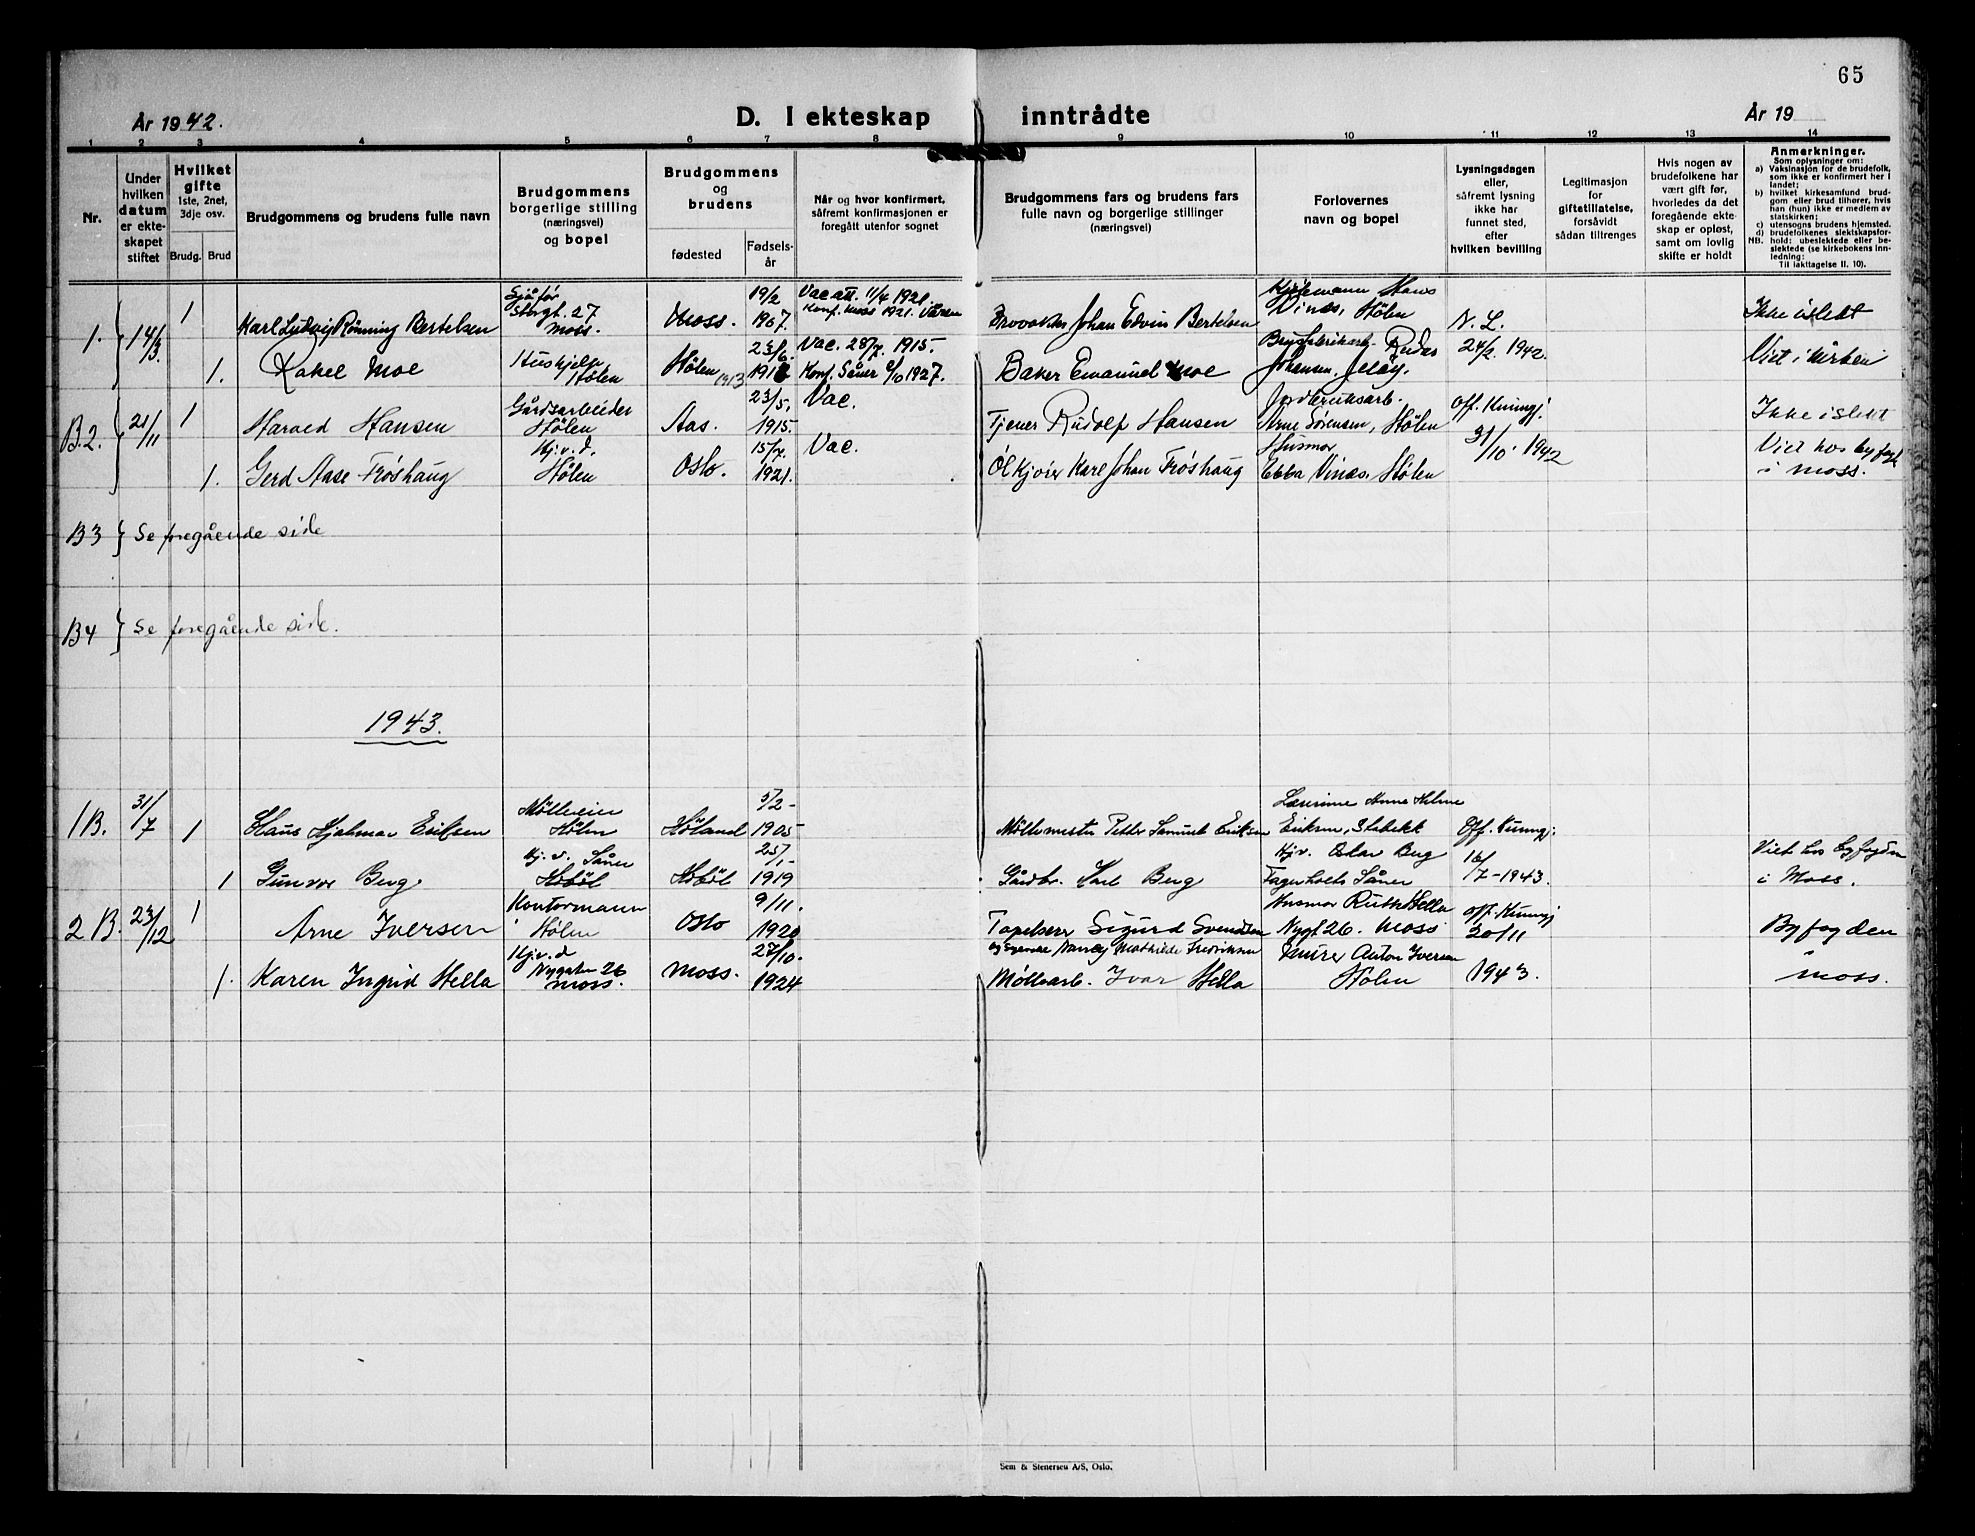 65
År 1942.
D. I ekteskap inntrådte
År 19
1 2 3 4 5 6 7 8 9 10 11 12 13 14
Nr.
Under
hvilken
datum
er ekte-
skapet
stiftet
Hvilket
gifte
1ste, 2net,
3dje osv.
Brudg. Brud
Brudgommens og brudens fulle navn
Brudgommens
borgerlige stilling
(næringsvei)
og bopel
Brudgommens
og
brudens
fødested
Fødsels-
år
Når og hvor konfirmert,
såfremt konfirmasjonen er
foregått utenfor sognet
Brudgommens fars og brudens fars
fulle navn og borgerlige stillinger
(næringsvei)
Forlovernes
navn og bopel
Lysningsdagen
eller,
såfremt lysning
ikke har
funnet sted,
efter
hvilken bevilling
Legitimasjon
for
giftetillatelse,
forsåvidt
sådan tiltrenges
Hvis nogen av
brudefolkene har
vært gift før,
hvorledes da det
foregående ekte-
skap er opløst,
samt om lovlig
skifte er holdt
Anmerkninger.
Som oplysninger om:
a) Vaksinasjon for de brudefolk,
som ikke er konfirmert her i
landet;
b) hvilket kirkesamfund brud-
gom eller brud tilhører, hvis
han (hun) ikke er medlem av
statskirken;
c) utensogns brudens hjemsted.
d) brudefolkenes slektskapsfor-
NB. hold: ubeslektede eller be-
slektede (se kirkebokens inn-
ledning:
Til iakttagelse II. 10).
1. 14/3 1 Karl Ludvig Rønning Bertelsen
Sjåfør
Storgt. 27
Moss.
Moss.
19/2
1907.
Vac att. 11/4 1921.
Konf. Moss 1921. Våren
Johan Edvin Bertelsen
Hans
Vinæs, Hølen
N. L.
24/2 1942.
Ikke i slekt
1. Rakel Moe
Hushjelp
Hølen
Hølen
1913
23/6
Vac. 28/7 1915.
Konf. Såner 9/10 1927.
Baker Emanuel Moe
Johansen, Jeløy.
Viet i kirken
B.2. 21/11 1 Harald Hansen
Gårdsarbeider
Hølen
Aas.
23/5
1915.
Vac.
Tjener Rudolf Hansen
Jordbruksarb.
Arne Sørensen, Hølen
Off. Kunngj.
31/10 1942
Ikke i slekt
1. Gerd Aase Frøshaug
Hj. v. d.
Hølen
Oslo.
15/7
1921.
Vac.
Ølkjører Karl Johan Frøshaug
Husmor
Ebba Vinæs, Hølen
Viet hos byfogd
i Moss.
B3 } Se foregående side
B4 } Se foregående side.
1943.
1B. 31/7 1 Hans Hjalmar Eriksen
Mølleeier
Hølen
Høland
5/2-
1905-
Møllemester Peder Samuel Eriksen
Lærerinne Anna Helene
Eriksen, Stabekk
Off. Kunngj.
16/7-1943.
1 Gunvor Berg.
Hj. v. Såner
Hobøl
Hobøl
25/1-
1919
Gårdbr. Karl Berg
Hj v. Olav Berg
Fagerholt, Såner
Viet hos byfogden
i Moss.
2 B. 23/12 1 Arne Iversen
Kontormann
Hølen
Oslo
9/11.
1920
Tapetserer Sigurd Svendsen
og Syerske Nancy Mathilde Fredriksen
Husmor Ruth Hella
Nygt 26. Moss
Off. Kunngj
20/11
1943.
Byfogden
i
Moss.
1. Karen Ingrid Hella
Hj. v. d
Nygaten 26
Moss.
Moss.
27/10.
1924
Møllearb. Ivar Hella
Murer Anton Iversen
Hølen
Sem & Stenersen A/S, Oslo.